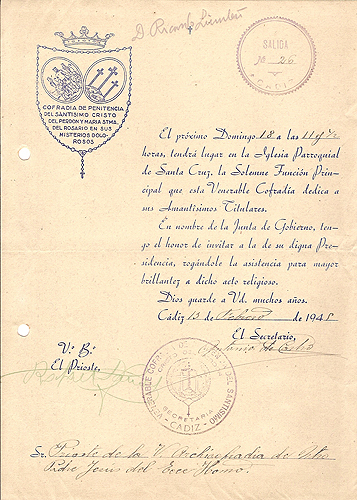 D. Ricardo
SALIDA
Nº 26
CADIZ
COFRADIA DE PENITENCIA
DEL SANTISIMO CRISTO
DEL PERDON Y MARIA STMA.
DEL ROSARIO EN SUS
MISTERIOS DOLO-
ROSOS
El próximo Domingo 12 a las 11 y ½
horas, tendrá lugar en la Iglesia Parroquial
de Santa Cruz, la Solemne Función Prin-
cipal que esta Venerable Cofradía dedica a
sus Amantísimos Titulares.
En nombre de la Junta de Gobierno, ten-
go el honor de invitar a la de su digna Pre-
sidencia, rogándole la asistencia para mayor
brillantez a dicho acto religioso.
Dios guarde a Vd. muchos años.
Cádiz 13 de de 194
El Secretario,
Antonio de
V.º B.º
El Prioste,
Rafael
VENERABLE COFRADIA DEL SANTISIMO
SECRETARIA
CADIZ
Sr. Prioste de la V. Archicofradia de Ntro
Padre Jesus del Ecce-Homo.